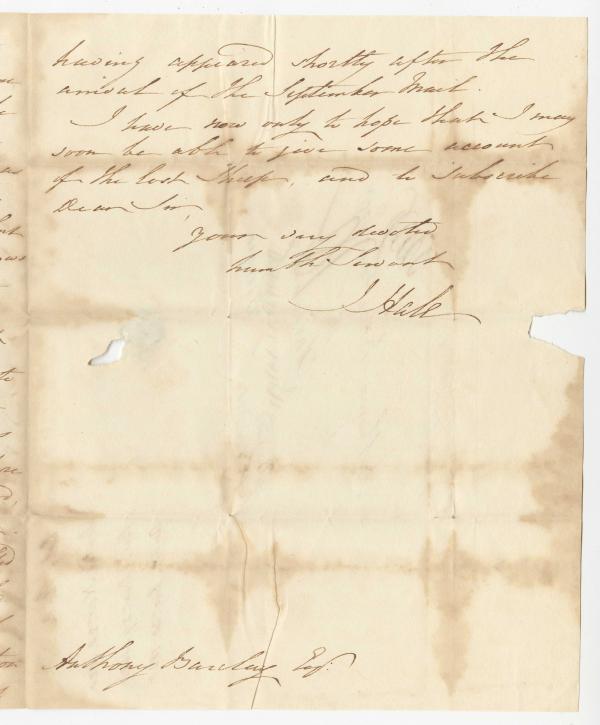 having appeared shortly after the
arrival of the September Mail.
I have now only to hope that I may
soon be able to give some account
of the lost Sheep, and to subscribe
Dear Sir,
your very devoted
humble Servant
J Hale
Anthony Barclay Esqr.